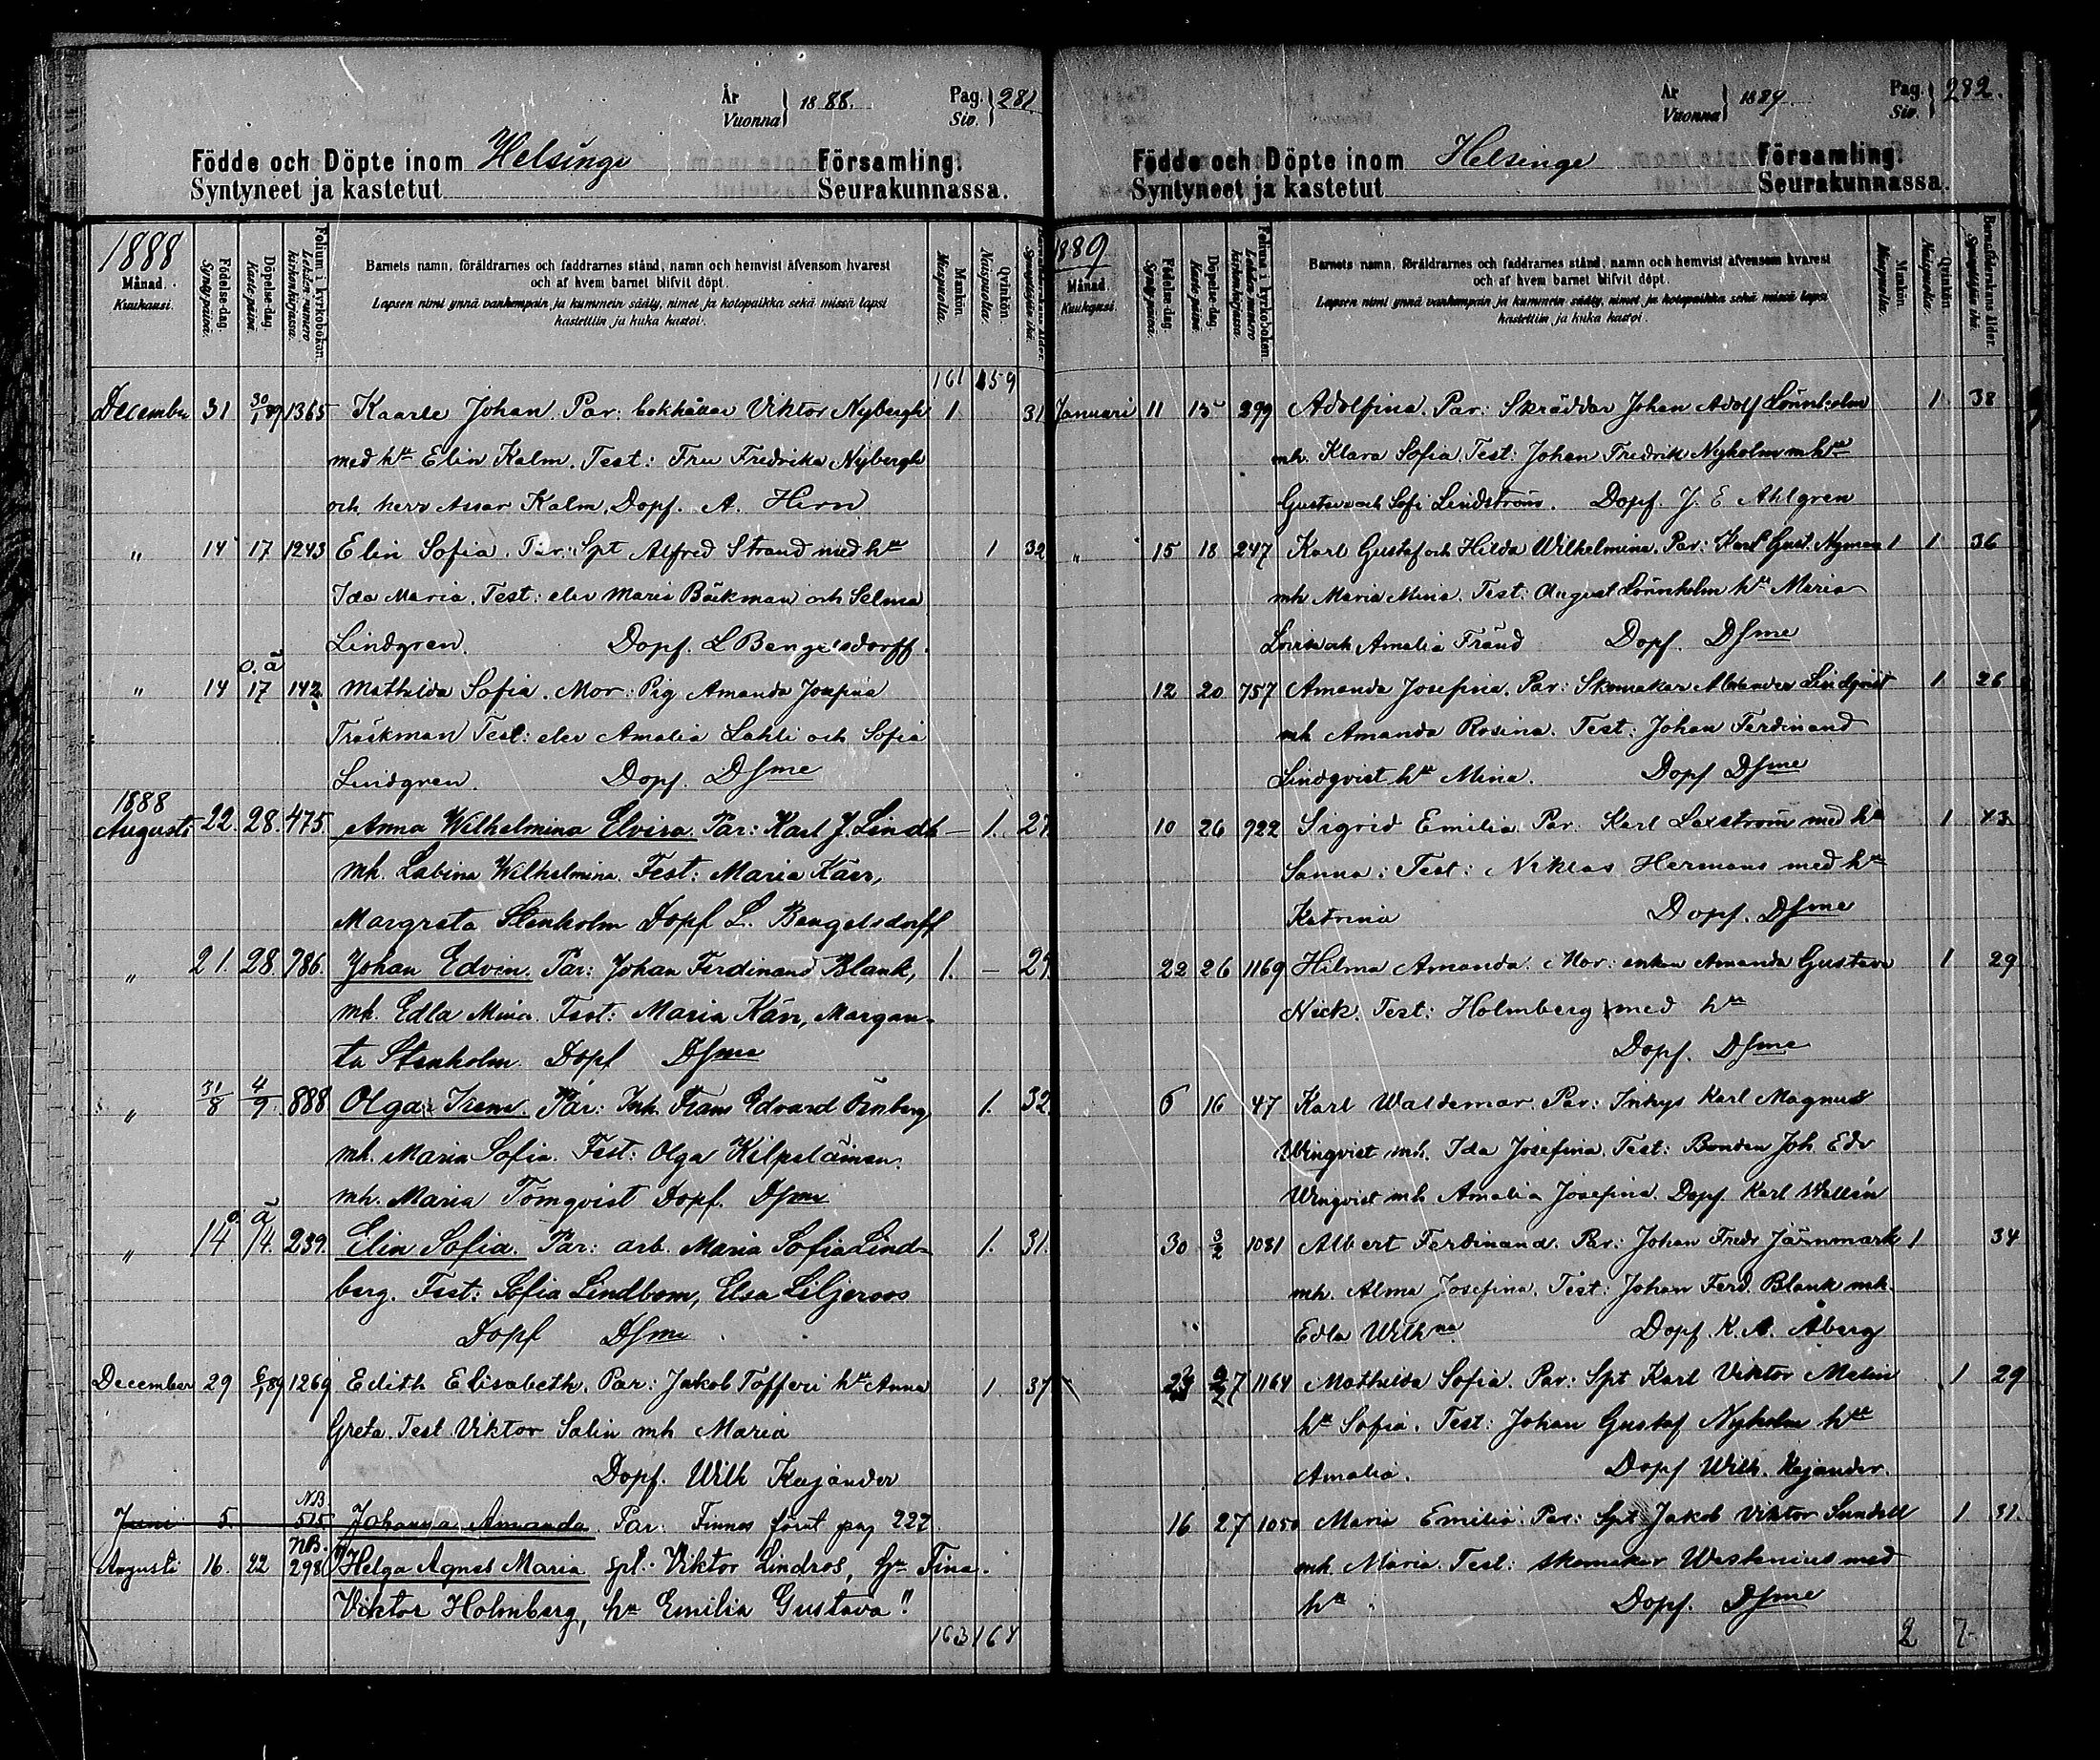 År
Vuonna } 1888.
Pag.
Siv. } 281
Födde och Döpte inom Helsinge Församling.
Syntyneet ja kastetut Seurakunnassa.
1888
Månad.
Kuukausi.
Födelse-dag.
Syntypäivä.
Döpelse-dag.
Kastepäivä.
Folium i kyrkoboken
Lehden numero kirkonkirjassa.
Barnets namn, föräldrarnes och faddrarnes stånd, namn och hemvist äfvensom hvarest
och af hvem barnet blifvit döpt.
Lapsen nimi ynnä vanhempain ja kummein sääty, nimet ja kotopaikka sekä missä lapsi
kastettiin ja kuka kastoi.
Mankön.
Miespuolta.
Qvinkön.
Naispuolta.
161 159
December 31 30/1 89 1365 Kaarle Johan. Par: bokhållar Viktor Nybergh 1. 31
med hu Elin Kalm. Test: Fru Fredrika Nybergh
och herr Assar Kalm. Dopf. A. Hirn
" 14 17 1243 Elin Sofia. Par: Spt Alfred Strand med hu 1 32
Ida Maria. Test: elev Maria Bäckman och Selma
Lindgren. Dopf. L Bengelsdorff.
o. ä
" 14 17 142. Mathilda Sofia. Mor: Pig Amanda Josefina
Träskman Test: elev Amalia Lahli och Sofia
Lindgren. Dopf. Dsme
1888
Augusti 22. 28. 475. Anna Wilhelmina Elvira. Par: Karl J. Lindh — 1. 27
mh. Labina Wilhelmina. Test: Maria Kärr,
Margreta Stenholm Dopf L. Bengelsdorff
" 21. 28. 786. Johan Edvin. Par: Johan Ferdinand Blank, 1. — 29.
mh. Edla Mina. Test: Maria Kärr, Margare-
ta Stenholm. Dopf Dsme
" 31/8 4/9. 888 Olga Irene. Par: Inh. Frans Edvard Örnberg, 1. 32.
mh. Maria Sofia. Test: Olga Kilpeläinen.
mh. Maria Törnqvist Dopf. Dsme
o. ä
" 14 14. 239. Elin Sofia. Par: arb. Maria Sofia Lind- 1. 31.
berg. Test: Sofia Lindbom, Elsa Liljeroos
Dopf Dsme
December 29 6/1 89 1269 Edith Elisabeth. Par: Jakob Tofferi hu Anna 1. 37
Greta. Test Viktor Salin mh Maria
Dopf. Wilh Kajander
NB.
Juni 5. 515. Johanna Amanda. Par: Finnes förut pag 222.
NB.
Augusti 16. 22 298 "Helga Agnes Maria spt. Viktor Lindros, hu Fina.
Viktor Holmberg, hu Emilia Gustava."
163 164
År
Vuonna } 1889.
Pag.
Siv. } 282.
Födde och Döpte inom Helsinge Församling.
Syntyneet ja kastetut Seurakunnassa.
1889
Månad.
Kuukausi.
Födelse-dag.
Syntypäivä.
Döpelse-dag.
Kastepäivä.
Folium i kyrkoboken
Lehden numero kirkonkirjassa.
Barnets namn, föräldrarnes och faddrarnes stånd, namn och hemvist äfvensom hvarest
och af hvem barnet blifvit döpt.
Lapsen nimi ynnä vanhempain ja kummein sääty, nimet ja kotopaikka sekä missä lapsi
kastettiin ja kuka kastoi.
Mankön.
Miespuolta.
Qvinkön.
Naispuolta.
Barnaföderskans ålder.
Synnyttäjän ikä.
Januari 11 15 299 Adolfina. Par: Skräddar Johan Adolf Lönnholm 1 38
mh. Klara Sofia. Test: Johan Fredrik Nyholm m hu
Gustava och Sofi Lindström. Dopf. J. E Ahlgren
" 15 18 247 Karl Gustaf och Hilda Wilhelmina. Par: Karl Gust. Nyman 1 1 36
mh Maria Mina. Test: August Lönnholm hu Maria
Lovisa och Amalia Fränd Dopf. Dsme
12 20 757 Amanda Josefina. Par: Skomakar Alexander Lindqvist 1 26
mh Amanda Rosina. Test: Johan Ferdinand
Lindqvist hu Mina. Dopf Dsme
10 26 922 Sigrid Emilia. Par: Karl Laxström med hu 1 43.
Sanna: Test: Niklas Hermans med hu
Katrina Dopf. Dsme
22 26 1169 Hilma Amanda. Mor: enkan Amanda Gustava 1 29
Nick. Test: Holmberg med hu
Dopf. Dsme
6 16 47 Karl Waldemar. Par: Inhys Karl Magnus
Wingvist mh. Ida Josefina. Test: Bonden Joh Edv
Wingvist mh Amalia Josefina. Dopf Karl Wallén
30 3/2 1031 Albert Ferdinand. Par: Johan Fredr Järnmark 1 34
mh. Alma Josefina. Test: Johan Ferd. Blank mh.
Edla Wilhna Dopf. K. A. Åberg
27 1164 Mathilda Sofia. Par: Spt Karl Viktor Malin 1 29
hu Sofia. Test: Johan Gustaf Nyholm hu
Amalia. Dopf Wilh. Kajander.
16 27 1050 Maria Emilia Par: Spt Jakob Viktor Sundell 1 31.
mh. Maria. Test: skomakar Westenius med
hu Dopf. Dsme
2 7